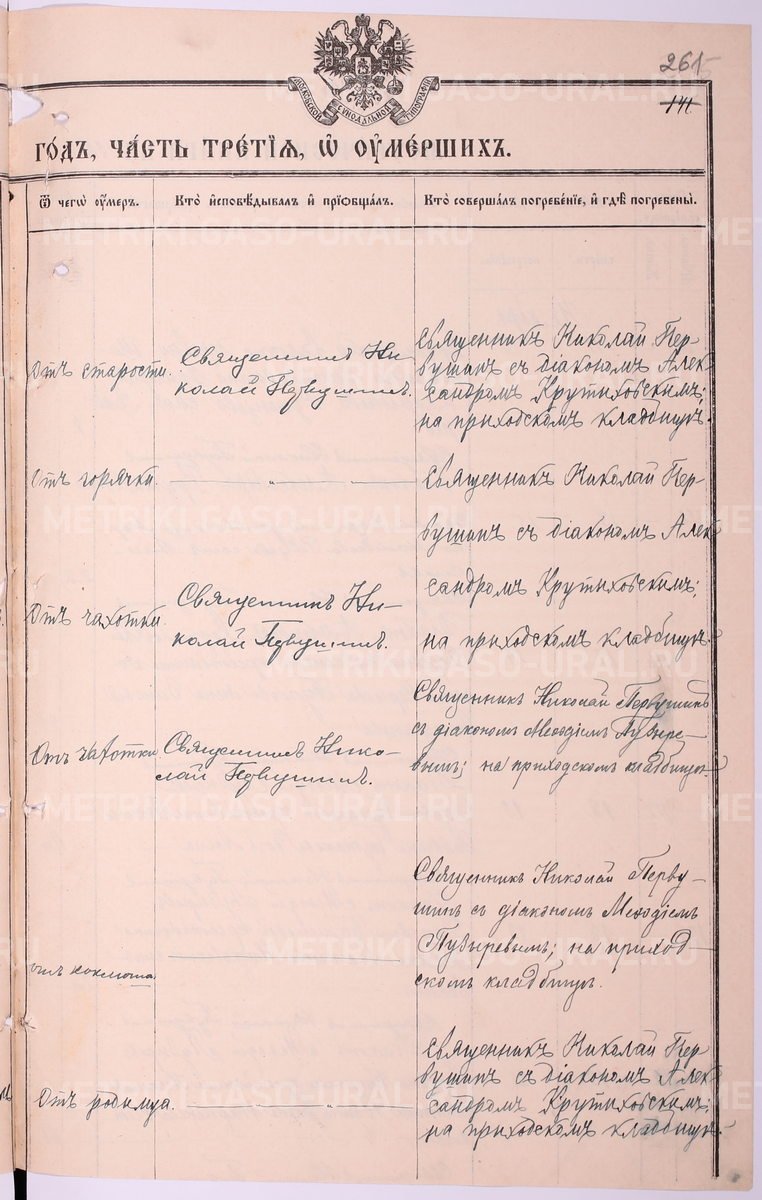 261
141
МОСКОВСКОЙ СѴНОДАЛЬНОЙ ТИПОГРАФІИ
ГО́ДЪ, ЧА́СТЬ ТРЕ́ТІѦ, Ѡ҆ ОУ҆МЕ́РШИХЪ.
Ѿ чегѡ̀ оу҆́меръ.
Кто̀ и҆сповѣ́дывалъ и҆ прїѡбща́лъ.
Кто̀ соверша́лъ погребе́нїе, и҆ гдѣ̀ погребены̀.
Отъ старости.
Священникъ Ни-
колай Первушинъ.
Священникъ Николай Пер-
вушинъ съ діакономъ Алек-
сандромъ Крутиховскимъ;
на приходскомъ кладбищѣ.
Отъ горячки.
— „ —
Священникъ Николай Пер-
вушинъ съ діакономъ Алек-
сандромъ Крутиховскимъ;
на приходскомъ кладбищѣ.
Отъ чахотки.
Священникъ Ни-
колай Первушинъ.
Отъ чахотки
Священникъ Нико-
лай Первушинъ.
Священникъ Николай Первушинъ
съ діакономъ Меѳодіемъ Пузыре-
вымъ; на приходскомъ кладбищѣ
отъ коклюша.
Священникъ Николай Перву-
шинъ съ діакономъ Меѳодіемъ
Пузыревымъ; на приход-
скомъ кладбищѣ.
Отъ родимца.
— „ —
Священникъ Николай Пер-
вушинъ съ діакономъ Алек-
сандромъ Крутиховскимъ;
на приходскомъ кладбищѣ.
METRIKI.GASO-URAL.RU